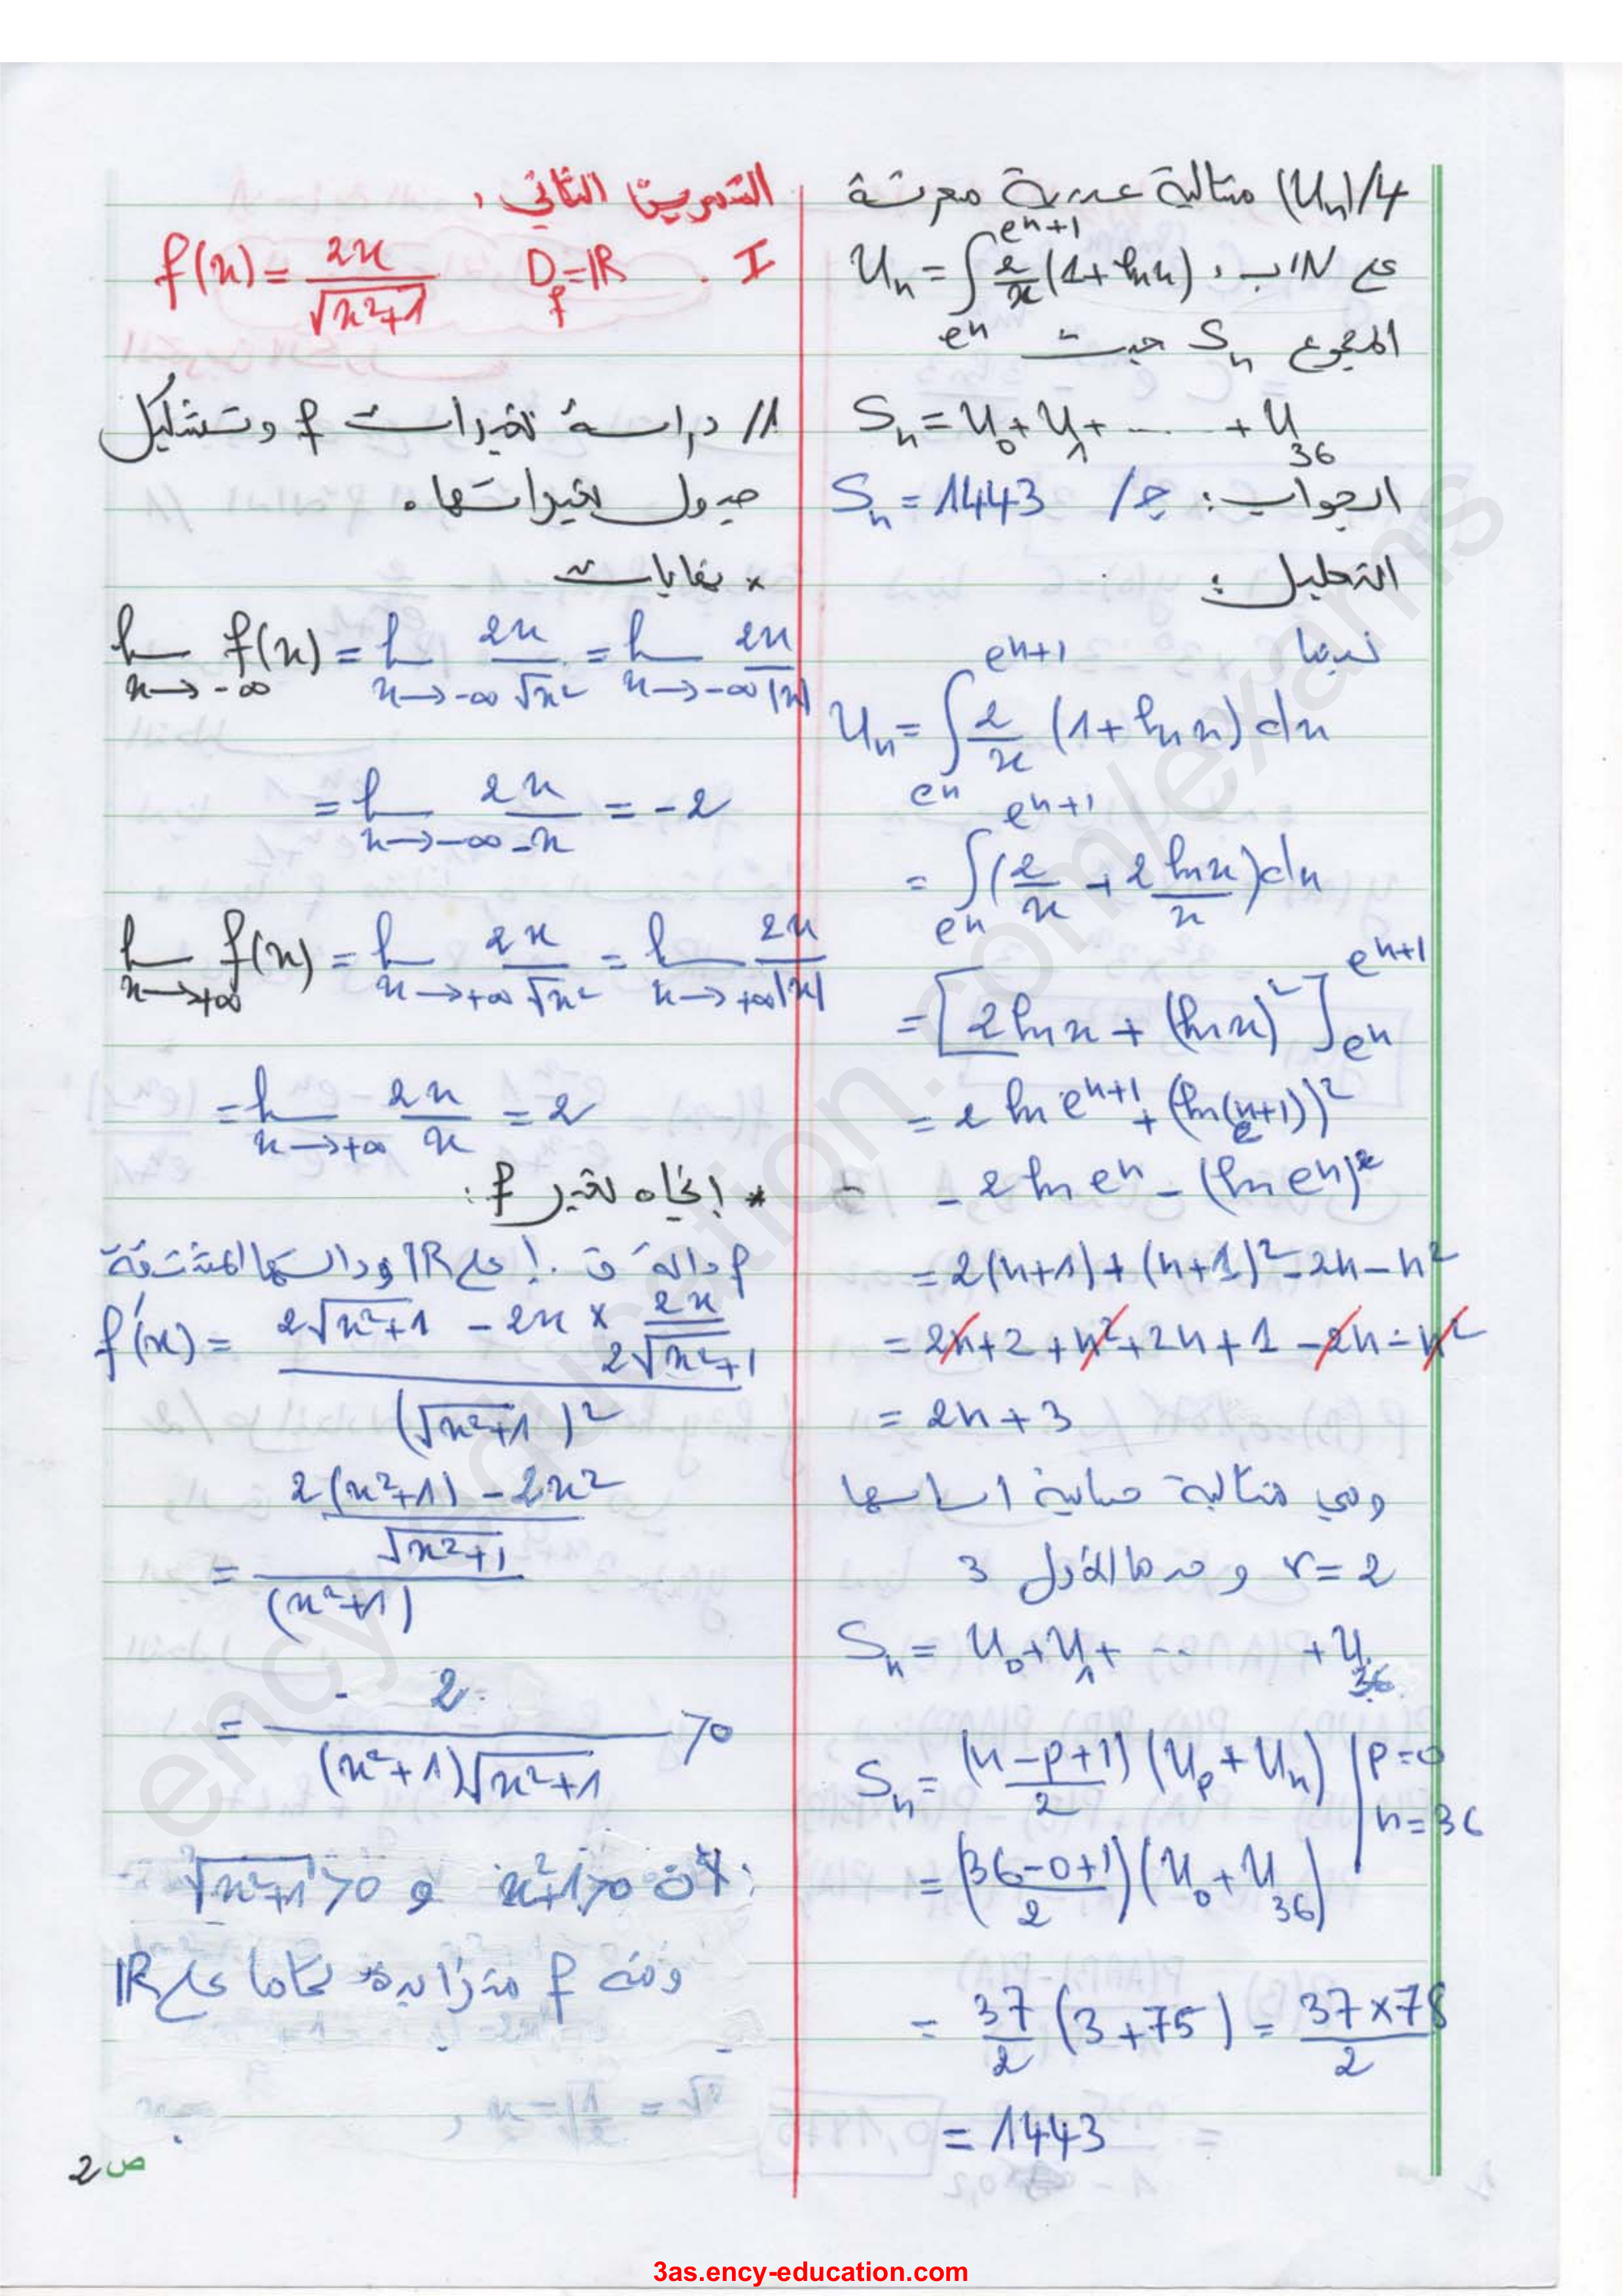 4/ (Uₙ) متتالية عددية معرفة
على IN بـ: Uₙ = ∫_{eⁿ}^{eⁿ⁺¹} 2/x (1+ln x)
المجموع Sₙ حيث
Sₙ = U₀ + U₁ + ...... + U₃₆
الجواب: ج/ Sₙ = 1443
التعليل:
لدينا
Uₙ = ∫_{eⁿ}^{eⁿ⁺¹} 2/x (1+ln x) dx
= ∫_{eⁿ}^{eⁿ⁺¹} (2/x + 2 ln x/x) dx
= [2 ln x + (ln x)²]_{eⁿ}^{eⁿ⁺¹}
= 2 ln eⁿ⁺¹ + (ln e^(n+1))²
- 2 ln eⁿ - (ln eⁿ)²
= 2(n+1) + (n+1)² - 2n - n²
= 2n + 2 + n² + 2n + 1 - 2n - n²
= 2n + 3
وهي متتالية حسابية اساسها
r = 2 و حدها الأول 3
Sₙ = U₀ + U₁ + ... + U₃₆
Sₙ = (n-p+1)/2 (Uₚ + Uₙ) | p=0
n=36
= ((36-0+1)/2) (U₀ + U₃₆)
= 37/2 (3+75) = 37×78/2
= 1443
التمرين الثاني:
I. D_f = IR f(x) = 2x/√(x²+1)
1/ دراسة تغيرات f وتشكيل
جدول تغيراتها.
* نهايات
lim_{x→-∞} f(x) = lim_{x→-∞} 2x/√x² = lim_{x→-∞} 2x/|x|
= lim_{x→-∞} 2x/-x = -2
lim_{x→+∞} f(x) = lim_{x→+∞} 2x/√x² = lim_{x→+∞} 2x/|x|
= lim_{x→+∞} 2x/x = 2
* إتجاه تغير f:
f دالة ق.إ على IR ودالتها المشتقة
f'(x) = (2√(x²+1) - 2x × 2x/(2√(x²+1)))/(√(x²+1))²
= ((2(x²+1) - 2x²)/√(x²+1))/(x²+1)
= 2/((x²+1)√(x²+1)) > 0
لأن x²+1>0 و √(x²+1)>0
ومنه f متزايدة تماما على IR
ص 2
ency-education.com/exams
3as.ency-education.com